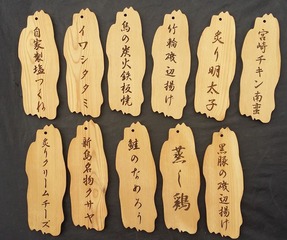 自家製塩つくね
イワシタタミ
鳥の炭火鉄板焼
竹輪磯辺揚げ
炙り明太子
宮崎チキン南蛮
炙りクリームチーズ
新島名物クサヤ
鮭のなめろう
蒸し鶏
黒豚の磯辺揚げ